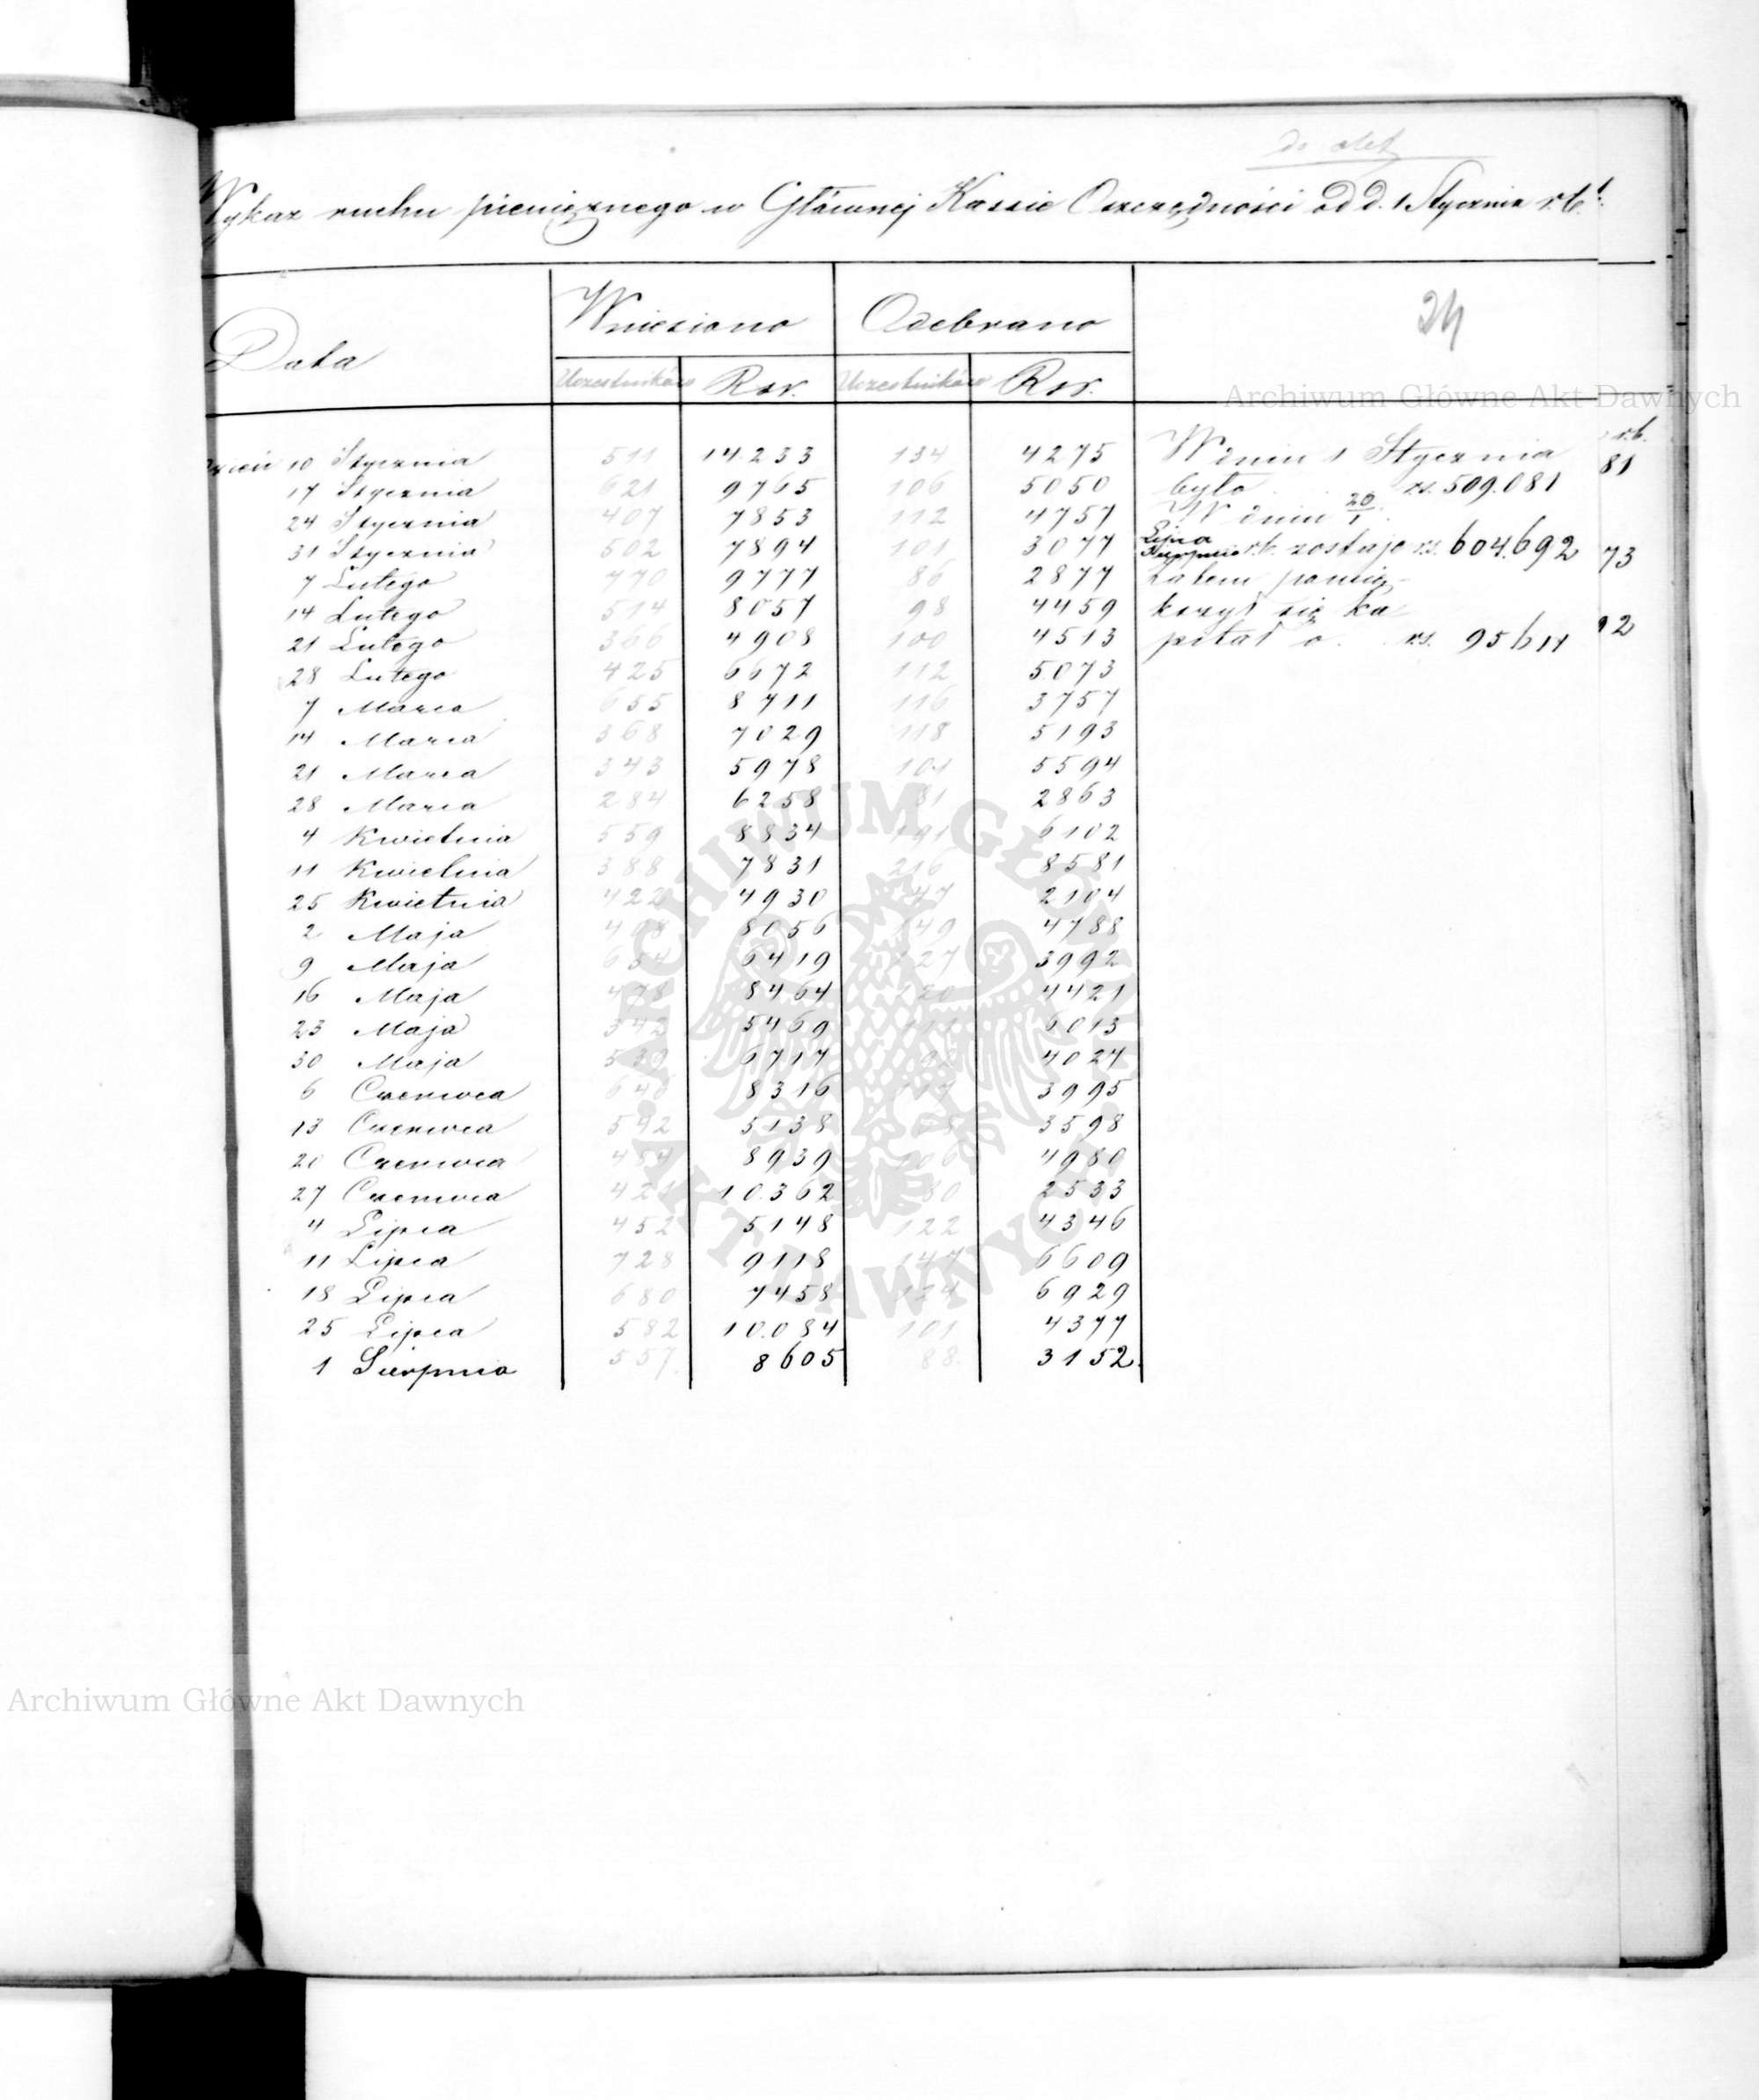 do akt
Wykaz ruchu pieniężnego w Głównej Kassie Oszczędności od d. 1 Stycznia r.b.
24
Data Wniesiono Odebrano
Uczestników Rsr. Uczestników Rsr.
Archiwum Główne Akt Dawnych
10 Stycznia 511 14.233 134 4275
17 Stycznia 621 9765 106 5050
24 Stycznia 407 7853 112 4757
31 Stycznia 502 7894 101 3077
7 Lutego 770 9777 86 2877
14 Lutego 514 8057 98 4459
21 Lutego 366 4908 100 4513
28 Lutego 425 6672 112 5.073
7 Marca 655 8711 116 3757
14 Marca 368 7029 118 5193
21 Marca 343 5978 101 5594
28 Marca 284 6258 81 2863
4 Kwietnia 559 8834 191 6102
11 Kwietnia 388 7831 216 8581
25 Kwietnia 422 4930 47 2104
2 Maja 408 8056 149 4788
9 Maja 654 6419 127 3992
16 Maja 478 8464 120 4421
23 Maja 342 5469 6013
30 Maja 539 6717 4027
6 Czerwca 8316 117 3995
13 Czerwca 542 5138 3598
20 Czerwca 484 8939 106 4980
27 Czerwca 421 10.362 80 2533
4 Lipca 452 5148 122 4346
11 Lipca 728 9118 147 6609
18 Lipca 680 7458 124 6929
25 Lipca 582 10.084 101 4377
1 Sierpnia 557. 8605 88. 3152.
W dniu 1 Stycznia
było rs. 509.081
W dniu 20/1
Lipca
Sierpnia r.b. zostaje rs. 604.692
zatem powię-
kszył się ka
pitał o rs. 95611
r.b.
81
73
92
ARCHIWUM GŁÓWNE AKT DAWNYCH
Archiwum Główne Akt Dawnych